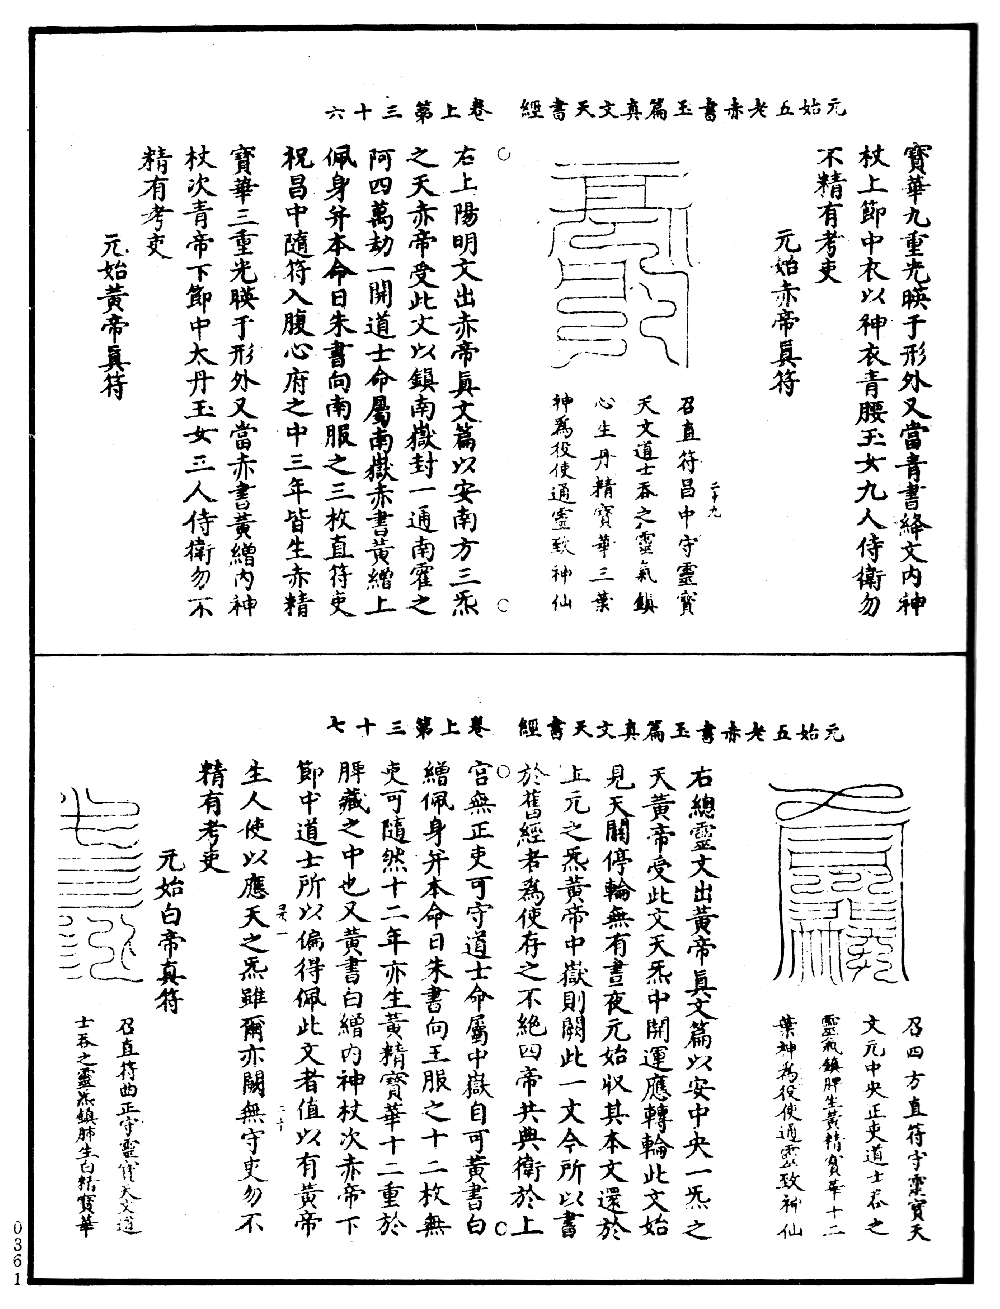 元始五老赤書玉篇真文天書經　卷上第三十六
寶華九重光暎于形外又當青書絳文內神
杖上節中衣以神衣青腰玉女九人侍衛勿
不精有考吏
元始赤帝真符
召直符昌中守靈寶
二十九
天文道士吞之靈氣鎮
心生丹精寶華三葉
神為役使通靈致神仙
右上陽明文出赤帝真文篇以安南方三炁
之天赤帝受此文以鎮南嶽封一通南霍之
阿四萬劫一開道士命屬南嶽赤書黃繒上
佩身并本命日朱書向南服之三枚直符吏
祝昌中隨符入腹心府之中三年皆生赤精
寶華三重光暎于形外又當赤書黃繒內神
杖次青帝下節中太丹玉女三人侍衛勿不
精有考吏
元始黃帝真符
元始五老赤書玉篇真文天書經　卷上第三十七
召四方直符守靈寶天
文元中央正吏道士吞之
靈氣鎮脾生黃精寶華十二
葉神為役使通靈致神仙
右總靈文出黃帝真文篇以安中央一炁之
天黃帝受此文天炁中開運應轉輪此文始
見天關停輪無有晝夜元始收其本文還於
上元之炁黃帝中嶽則闕此一文今所以書
於舊經者為使存之不絕四帝共典衛於上
宮無正吏可守道士命屬中嶽自可黃書白
繒佩身并本命日朱書向王服之十二枚無
吏可隨然十二年亦生黃精寶華十二重於
脾藏之中也又黃書白繒內神杖次赤帝下
節中道士所以偏得佩此文者值以有黃帝
生人使以應天之炁雖爾亦闕無守吏勿不
精有考吏
元始白帝真符
召直符曲正守靈寶天文道
士吞之靈炁鎮肺生白精寶華
0361